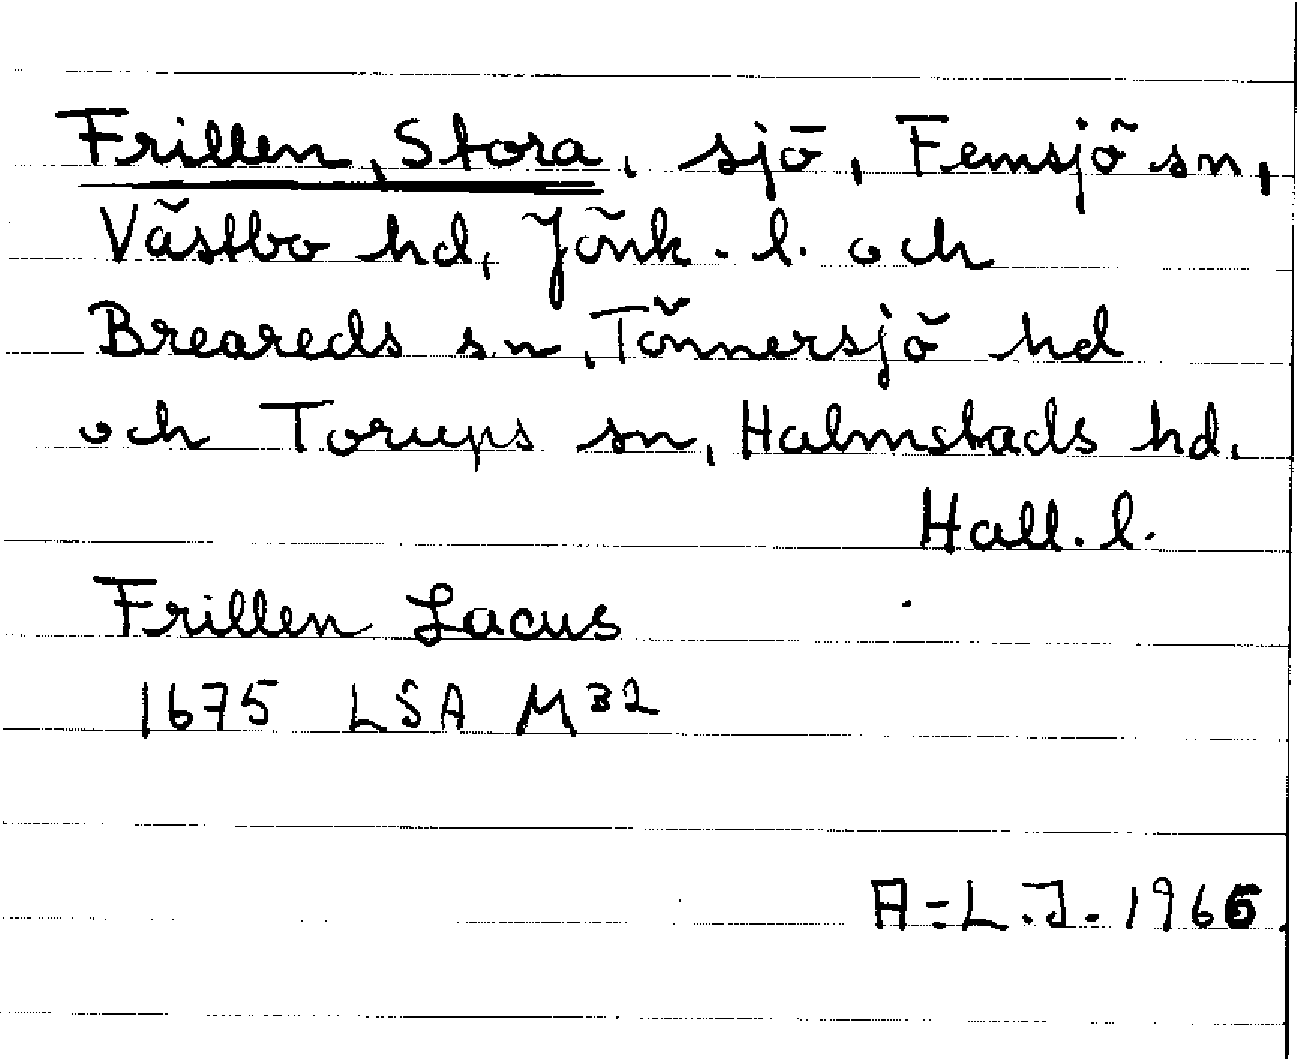 Frillen, Stora, sjö, Femsjö sn,
Västbo hd, Jönk. l. och
Breareds sn, Tönnersjö hd
och Torups sn, Halmstads hd.
Hall. l.
Frillen Lacus
1675 LSA M32
A-L.J. 1966